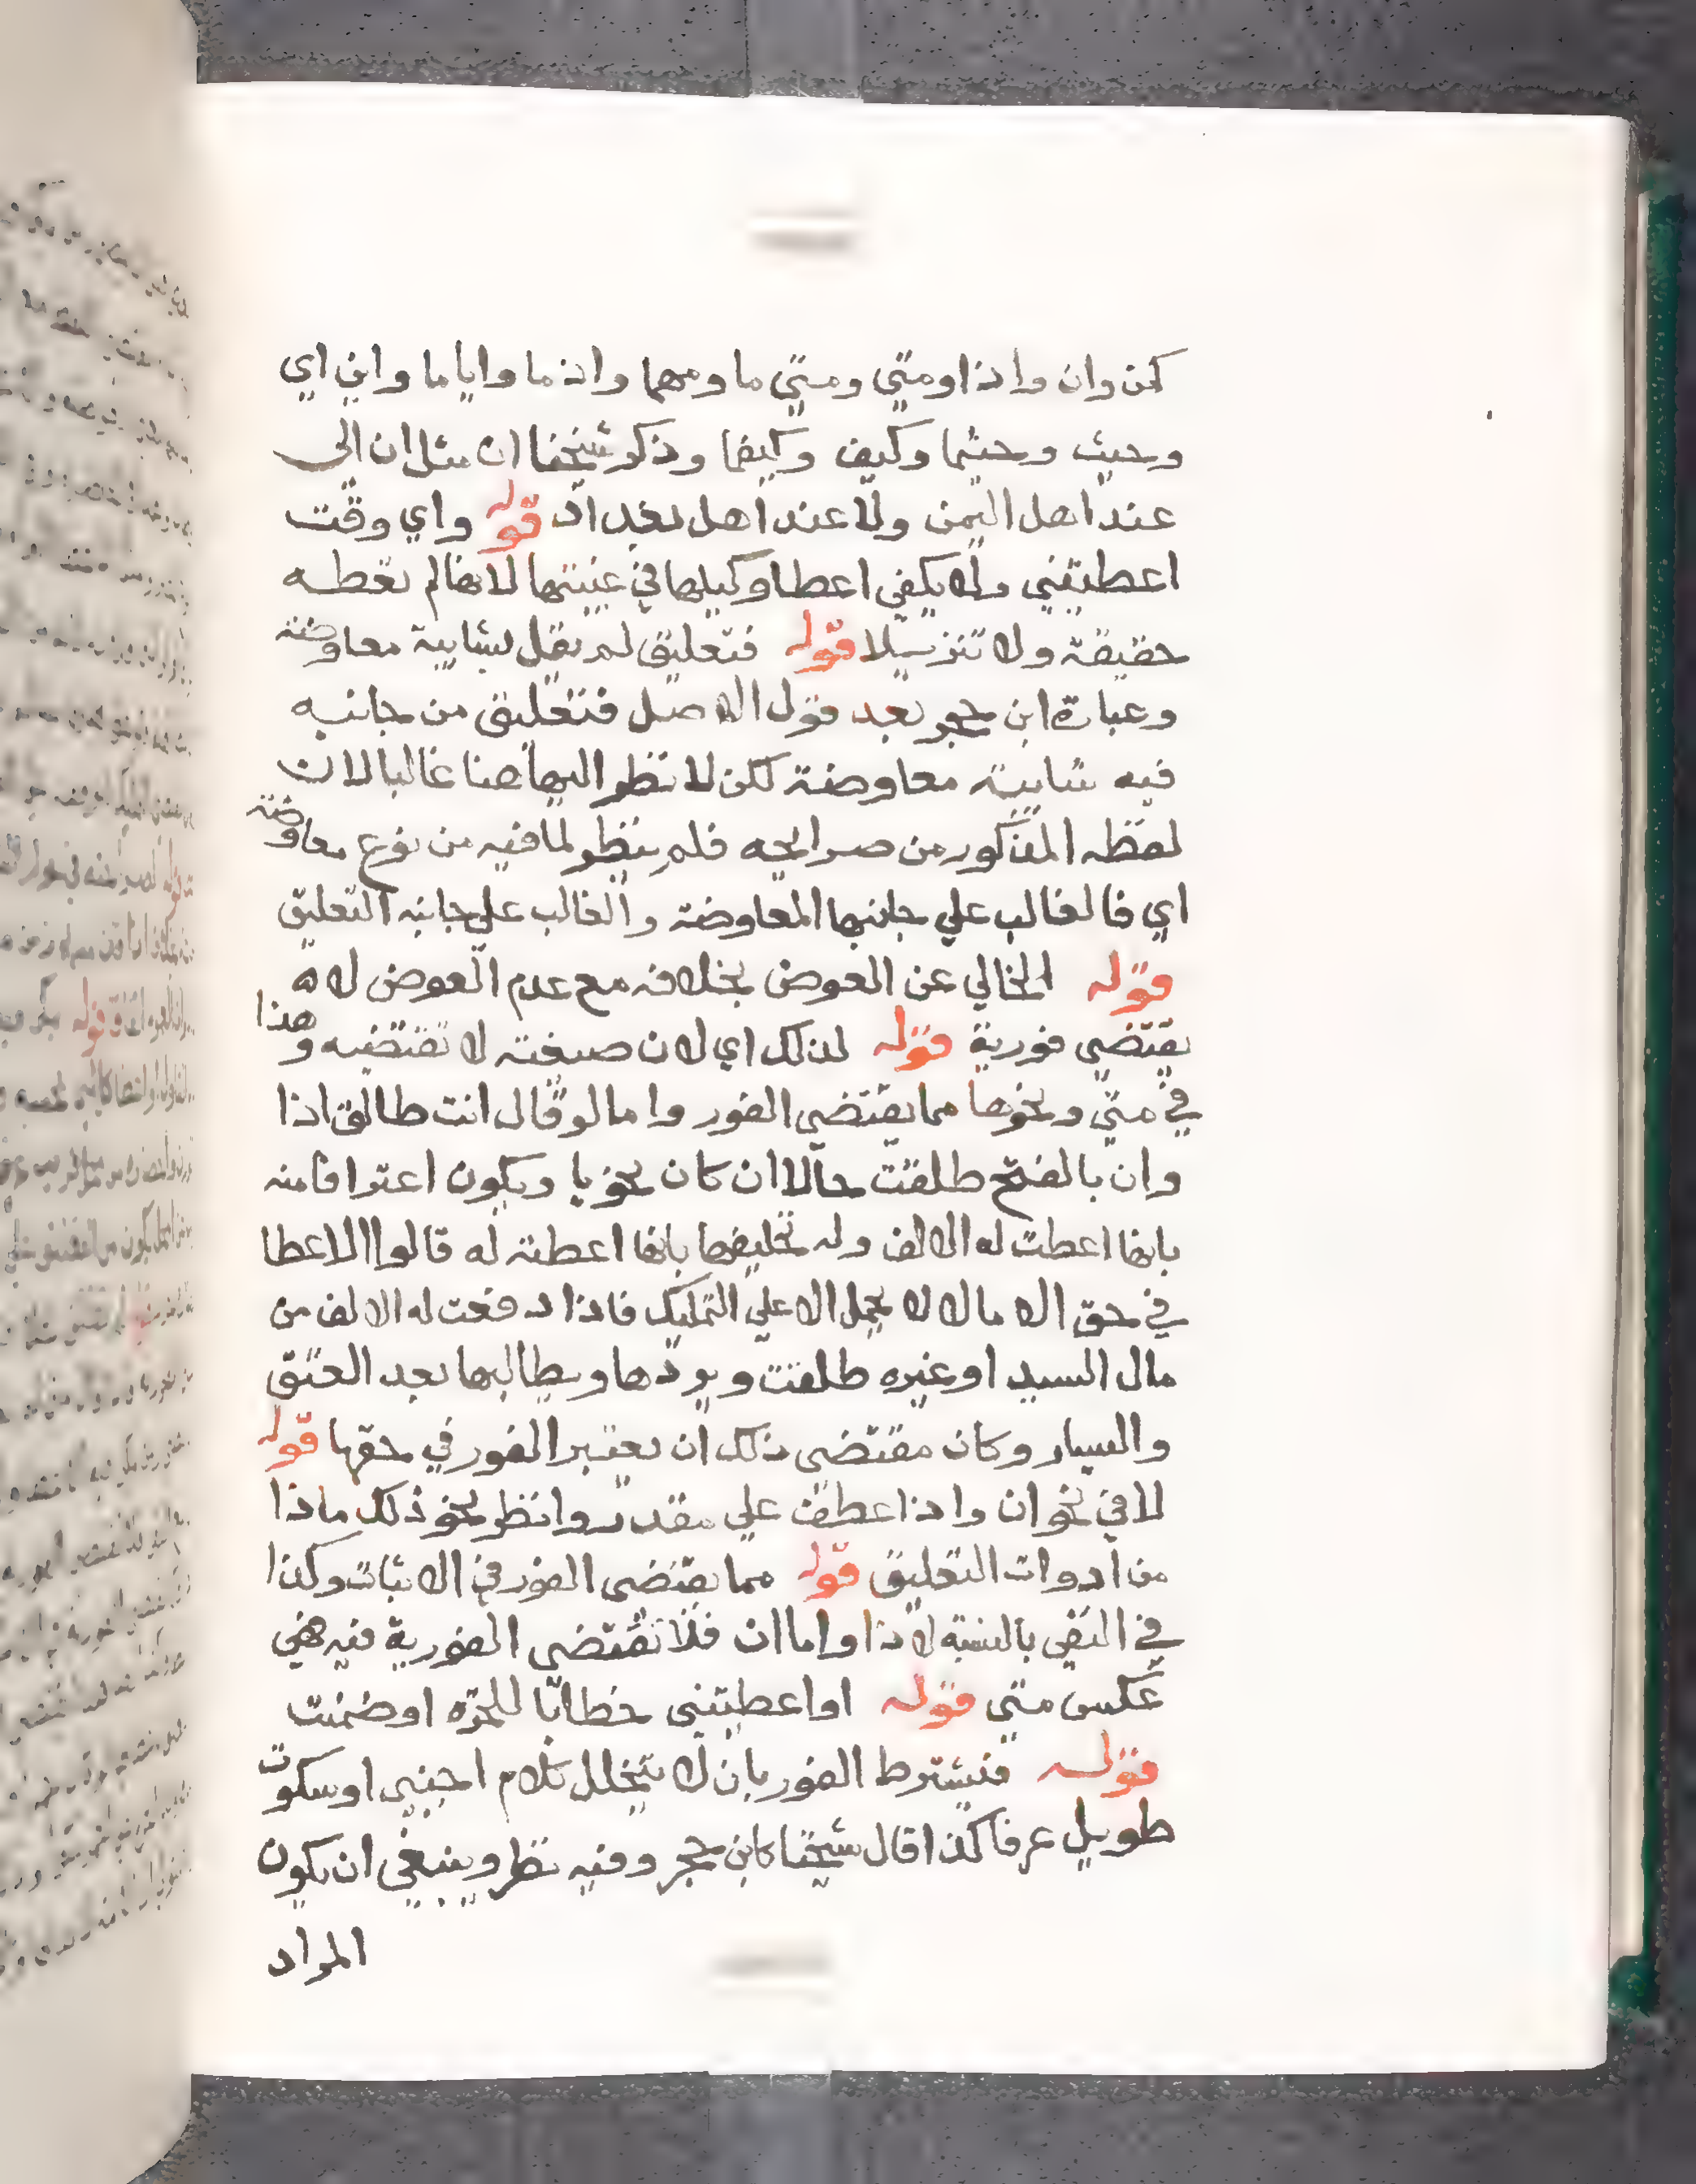 كمن وان واذا ومتي ومتي ما ومهما واذ ما واياما واين اي
وحيث وحيثما وكيف وكيفما وذكر شيخنا ان مثل ان الي
عند اهل اليمن ولا عند اهل بغداد قوله واي وقت
اعطيتني ولا يكفي اعطا وكيلها في غيبتها لانها لم تعطه
حقيقة ولا تنزيلا قوله فتعليق لم يقل بشايبة معاوضة
وعبارة ابن حجر بعد قول الاصل فتعليق من جانبه
فيه شايبة معاوضة لكن لا نظر اليها هنا غالبا لان
لفظه المذكور من صرايحه فلم ينظر لما فيه من نوع معاوضة
اي فالغالب علي جانبها المعاوضة والغالب علي جانبه التعليق
قوله الخالي عن العوض بخلافه مع عدم العوض لا
يقتضي فورية قوله لذلك اي لان صيغته لا تقتضيه وهذا
في متي ونحوها مما يقتضي الفور واما لو قال انت طالق اذا
وان بالفتح طلقت حالا ان كان نحويا ويكون اعترافا منه
بانها اعطت له الالف وله تحليفها بانها اعطته له قالوا الاعطا
في حق الا مال لا يحمل الا علي التمليك فاذا دفعت له الالف من
مال السيد او غيره طلقت ويردها ويطالبها بعد العتق
واليسار وكان مقتضي ذلك ان يعتبر الفور في حقها قوله
لا في نحو ان واذا عطف علي مقدر وانظر نحو ذلك ماذا
من ادوات التعليق قوله مما يقتضي الفور في الاثبات وكذا
في النفي بالنسبة لاذا واما ان فلا تقتضي الفورية فيه فهي
عكس متي قوله او اعطيتني خطابا للحرة او ضمنت
قوله فيشترط الفور بان لا يتخلل كلام اجنبي او سكوت
طويل عرفا كذا قال شيخنا كابن حجر وفيه نظر وينبغي ان يكون
المراد